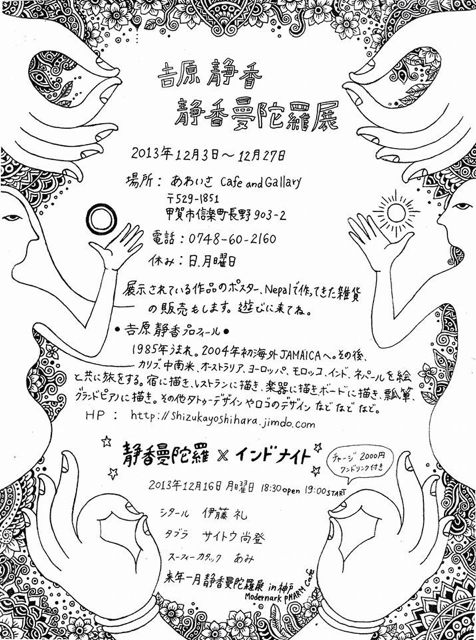 吉原 静香
静香曼陀羅展
2013年12月3日～12月27日
場所： あわいさ Cafe and Gallary
〒529-1851
甲賀市信楽町長野 903-2
電話：0748-60-2160
休み：日、月曜日
展示されている作品のポスター、Nepalで作ってきた雑貨
の販売もします。遊びに来てね。
• 吉原 静香プロフィール •
1985年うまれ。2004年初海外JAMAICAへ。その後、
カリブ、中南米、オーストラリア、ヨーロッパ、モロッコ、インド、ネパールを絵
と共に旅をする。宿に描き、レストランに描き、楽器に描きボードに描き、瓢箪、
グランドピアノに描き。その他タトゥーデザインやロゴのデザイン などなどなど。
HP： http://shizukayoshihara.jimdo.com
静香曼陀羅 × インドナイト
チャージ 2000円
ワンドリンク付き
2013年12月16日 月曜日 18:30 open 19:00 START
シタール 伊藤 礼
タブラ サイトウ尚登
スーフィーカタック あみ
来年一月 静香曼陀羅展 in 神戸
Modernark PHARM Cafe